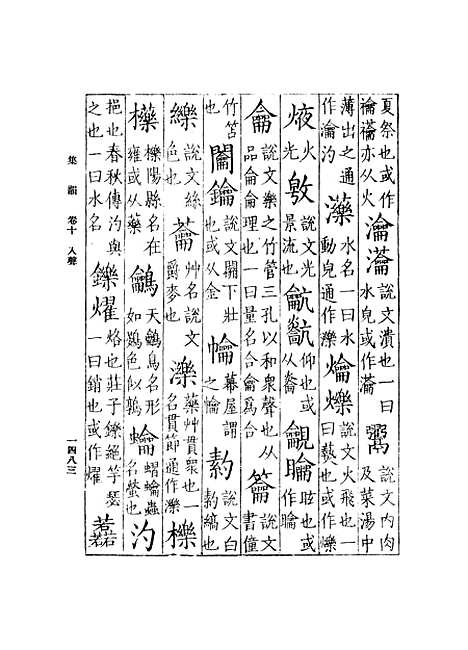 夏祭也或作禴䄤亦从火瀹𤅢說文漬也一曰水皃或作𤅢鬻說文内肉及菜湯中
薄出之通作瀹汋濼水名一曰水動皃通作濼爚爍說文火飛也一曰爇也或作爍
焲火光敫說文光景流也仰也或从龠眩也或作
龠說文樂之竹管三孔以和衆聲也从品侖侖理也一曰量名合龠爲合籥說文書僮
竹笘也闟鑰說文關下壯也或从金㡋幕屋謂之㡋䋤說文白䋤縞也
纅說文絲色也蘥艸名說文爵麥也濼藥艸貫衆也一名貫節通作濼櫟
櫟櫟陽縣名在雍或从藥鸙天鸙鳥名形如鷃色似鶉蠩名螢也汋
挹也春秋傳汋與之也一曰水名鑠燿烙也莊子鑠絕竽瑟一曰銷也或作燿
集韻 卷十 入聲
一四八三